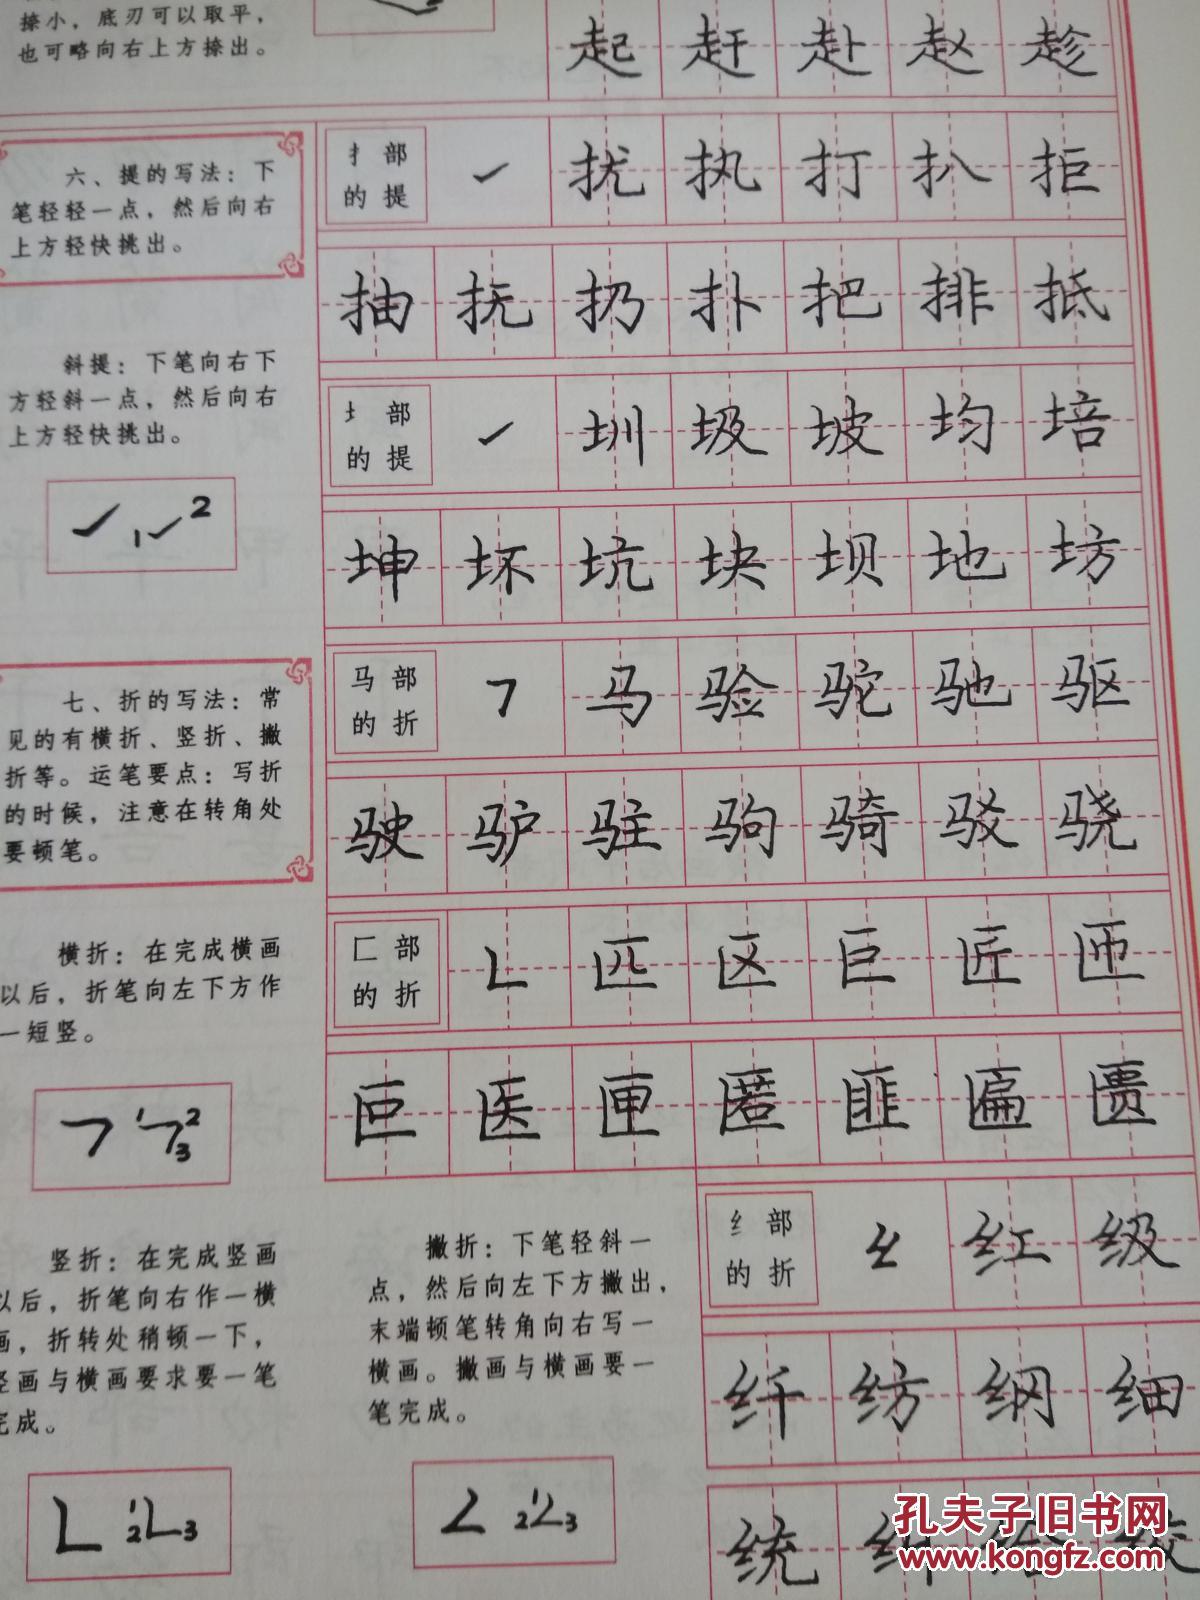 捺小，底刃可以取平，
也可略向右上方捺出。
起 赶 赴 赵 趁
六、提的写法：下
笔轻轻一点，然后向右
上方轻快挑出。
扌部
的提
扰 执 打 扒 拒
抽 抚 扔 扑 把 排 抵
斜提：下笔向右下
方轻斜一点，然后向右
上方轻快挑出。
1 2
土部
的提
圳 圾 坡 均 培
坤 坏 坑 块 坝 地 坊
七、折的写法：常
见的有横折、竖折、撇
折等。运笔要点：写折
的时候，注意在转角处
要顿笔。
马部
的折
马 验 驼 驰 驱
驶 驴 驻 驹 骑 驳 骁
横折：在完成横画
以后，折笔向左下方作
一短竖。
1 2 3
匚部
的折
匹 区 巨 匠 匝
叵 医 匣 匿 匪 匾 匮
竖折：在完成竖画
以后，折笔向右作一横
画，折转处稍顿一下，
竖画与横画要求要一笔
完成。
1 2 3
撇折：下笔轻斜一
点，然后向左下方撇出，
末端顿笔转角向右写一
横画。撇画与横画要一
笔完成。
1 2 3
纟部
的折
红 级
纤 纺 纲 细
统
孔夫子旧书网
www.kongfz.com